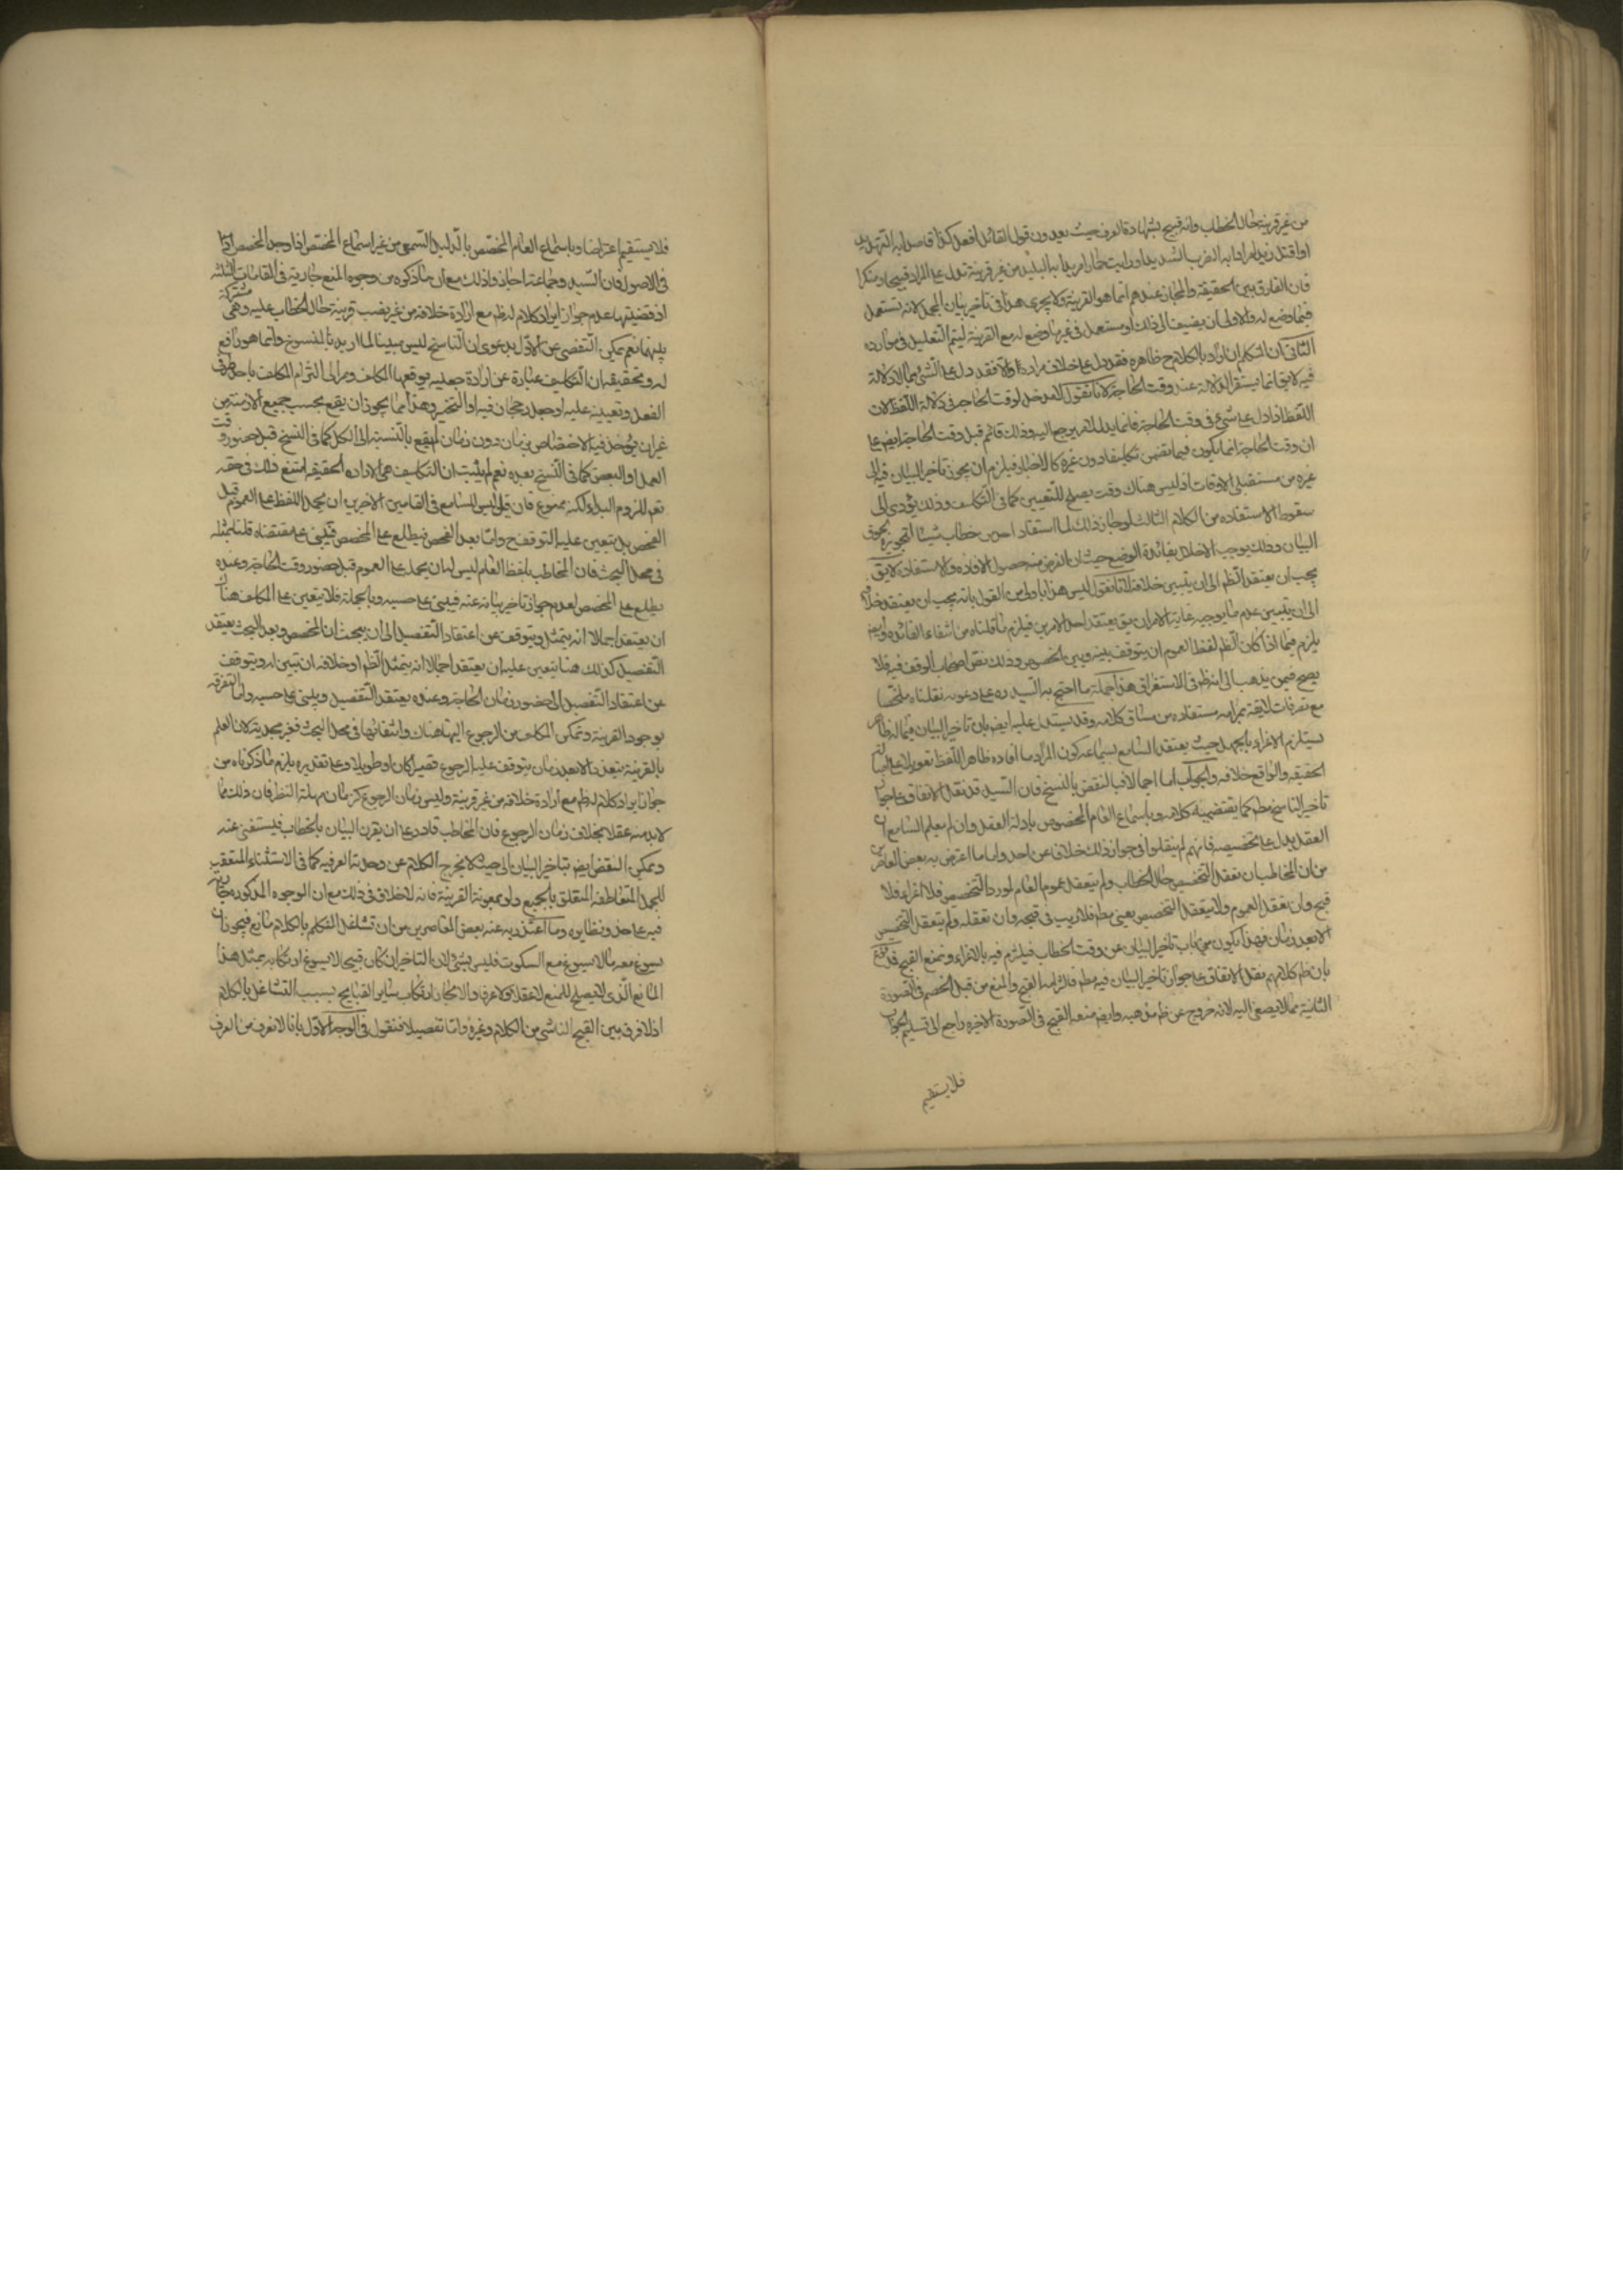 من غير قرينة حال الخطاب وانه قبيح بشهادة العرف حيث يعدون قول القائل افعل كذا قاصدا به التهديد
او اقتل زيدا مرادا به الضرب الشديد او رايت حمارا مريدا به البليد من غير قرينة تدل على المراد قبيحا ومنكرا
فان الفارق بين الحقيقة والمجاز عندهم انما هو القرينة ولا يجرى هذا في تاخير بيان المجمل لانه مستعمل
فيما وضع له والاولى ان يضيف الى ذلك او مستعمل في غير ما وضع له مع القرينة ليتم التعليل في موارده
الثاني ان المتكلم ان اراد بالكلام خ ظاهره فقد دل على خلاف مراده والا فقد دل على الشئ بما لا دلالة
فيه لا يق انما يستقر الدلالة عند وقت الحاجة لانا نقول لا مدخل لوقت الحاجة في دلالة اللفظ لان
اللفظ اذا دل على شئ في وقت الحاجة فانما يدل لامر يرجع اليه وذلك قائم قبل وقت الحاجة ايضا على
ان وقت الحاجة انما يكون فيما يتضمن تكليفا دون غيره كالاخبار فيلزم ان يجوز تاخير البيان فيه الى
غيره من مستقبل الاوقات اذ ليس هناك وقت يصلح للتعيين كما في التكليف وذلك يؤدي الى
سقوط الاستفادة من الكلام الثالث لو جاز ذلك لما استفاد احد من خطاب شيئا لتجويزه
البيان وذلك يوجب الاخلال بفائدة الوضع حيث ان الغرض منه حصول الافادة والاستفادة لا يق
يجب ان يعتقد الظم الى ان يتبين خلافه لانا نقول ليس هذا باولى من القول بانه يجب ان يعتقد خلافه
الى ان يتبين عدم ما يوجبه غاية الامر ان يق يعتقد احد الامرين فيلزم ما قلناه من انتفاء الفائدة وايضا
يلزم فيما اذا كان الظم لفظ العموم ان يتوقف بينه وبين الخصوص وذلك نقض اصحاب الوقف فيه فلا
يصح فيمن يذهب الى انه ظم في الاستغراق هذا جملة ما احتج به السيد ره على دعوبه نقلناه ملخصا
مع تصرفات لايقة بمرامه مستفادة من مساق كلامه وقد يستدل عليه ايضا بان تاخير البيان فيما له ظاهر
يستلزم الاغراء بالجهل حيث يعتقد السامع بسماعه كون المراد ما افاده ظاهر اللفظ تعويلا على اصالة
الحقيقة والواقع خلافه والجواب اما اجمالا فبالنقض بالنسخ فان السيد قد نقل الاتفاق على جواز
تاخير الناسخ مطم كما يقتضيه كلامه وباسماع العام المخصوص بادلة العقل وان لم يعلم السامع ان
العقل يدل على تخصيصه فانهم لم ينقلوا في جواز ذلك خلافا عن احد واما ما اعترض به بعض المعاصرين
من ان المخاطب ان تعقل التخصيص حال الخطاب ولم يتعقل عموم العام لورد التخصيص فلا اغراء فلا
قبح وان تعقل العموم ولا يتعقل التخصيص يعني مطم فلا ريب في قبحه وان تعقله ولم يتعقل التخصيص
الا بعد زمان فهذا يكون من باب تاخير البيان عن وقت الخطاب فيلزم فيه بالاغراء ونمنع القبح
بان ظم كلامهم نقل الاتفاق على جواز تاخير البيان فيه مطم فالتزامه القبح والمنع من قبل الخصم في الصورة
الثانية مما لا يصغى اليه لانه خروج عن ظم مذهبه وايضا منعه القبح في الصورة الاخيرة راجع الى تسليم الجواب
فلا يستقيم
فلا يستقيم اعتراضا وباسماع العام المخصص بالدليل السمعي من غير اسماع المخصص اذا وجد المخصص
في الاصول فان السيد وجماعة اجازوا ذلك مع ان ما ذكروه من وجوه المنع جارية في المقامات الثلثة
اذ قضيتها عدم جواز ايراد كلام له ظم مع ارادة خلافه من غير نصب قرينة حال الخطاب عليه وهي مشتركة
بينها نعم يمكن التفصي عن الاول بدعوى ان الناسخ ليس مبينا لما اريد بالمنسوخ وانما هو رافع
له وتحقيقه ان التكليف عبارة عن ارادة جعلية يوقعها المكلف ومرجعها الى التزام المكلف باحد طرفي
الفعل وتعيينه عليه او جعل رجحان فيه او التخيير وهذا مما يجوز ان يقع بحسب جميع الازمنة من
غير ان يؤخذ فيه الاختصاص بزمان دون زمان ثم يرتفع بالنسبة الى الكل كما في النسخ قبل حضور وقت
العمل او البعض كما في النسخ بعده نعم لو ثبت ان التكليف هي الارادة الحقيقية امتنع ذلك في حقه
تعم للزوم البداء لكنه ممنوع فان قيل ليس للسامع في المقامين الاخيرين ان يحمل اللفظ على العموم قبل
الفحص بل يتعين عليه التوقف ح واما بعد الفحص فيطلع على المخصص فيبني على مقتضاه قلنا بمثله
في محل البحث فان المخاطب بلفظ العام ليس له ان يحمله على العموم قبل حضور وقت الحاجة وعنده
يطلع على المخصص لعدم جواز تاخير بيانه عنه فيبنى على حسبه وبالجملة فلا يتعين على المكلف هنا الا
ان يعتقد اجمالا انه يتمثل ويتوقف عن اعتقاد التفصيل الى ان يبحث عن المخصص وبعد البحث يعتقد
التفصيل كذلك هنا يتعين عليه ان يعتقد اجمالا انه يتمثل الظم او خلافه ان تبين له ويتوقف
عن اعتقاد التفصيل الى حضور زمان الحاجة وعنده يعتقد التفصيل ويبني على حسبه واما التفرقة
بوجود القرينة وتمكن المكلف من الرجوع اليها هناك وانتفائها في محل البحث فغير مجدية لان العلم
بالقرينة يتعذر الا بعد زمان يتوقف عليه الرجوع قصيرا كان او طويلا وعلى تقديره يلزم ما ذكرناه من
جواز ايراد كلام له ظم مع ارادة خلافه من غير قرينة وليس زمان الرجوع كزمان مهلة النظر فان ذلك مما
لا بد منه عقلا بخلاف زمان الرجوع فان المخاطب قادر على ان يقرن البيان بالخطاب فيستغنى عنه
ويمكن النقض ايضا بتاخير البيان الى حيث لا يخرج الكلام عن وحدته العرفية كما في الاستثناء المتعقب
للجمل المتعاطفة المتعلق بالجميع ولو بمعونة القرينة فانه لا خلاف في ذلك مع ان الوجوه المذكورة جارية
فيه على حذو نظايره وما اعتذر به عنه بعض المعاصرين من ان تشاغل المتكلم بالكلام مانع فيجوز ان
يسوغ معه ما لا يسوغ مع السكوت فليس بشئ لان التاخير ان كان قبيحا لا يسوغ ارتكابه بمثل هذا
المانع الذي لا يصلح للمنع لا عقلا ولا عرفا والا لجاز ارتكاب ساير القبايح بسبب التشاغل بالكلام
اذ لا فرق بين القبح الناشي من الكلام وغيره واما تفصيلا فنقول في الوجه الاول بانا لا نعرف من العرف